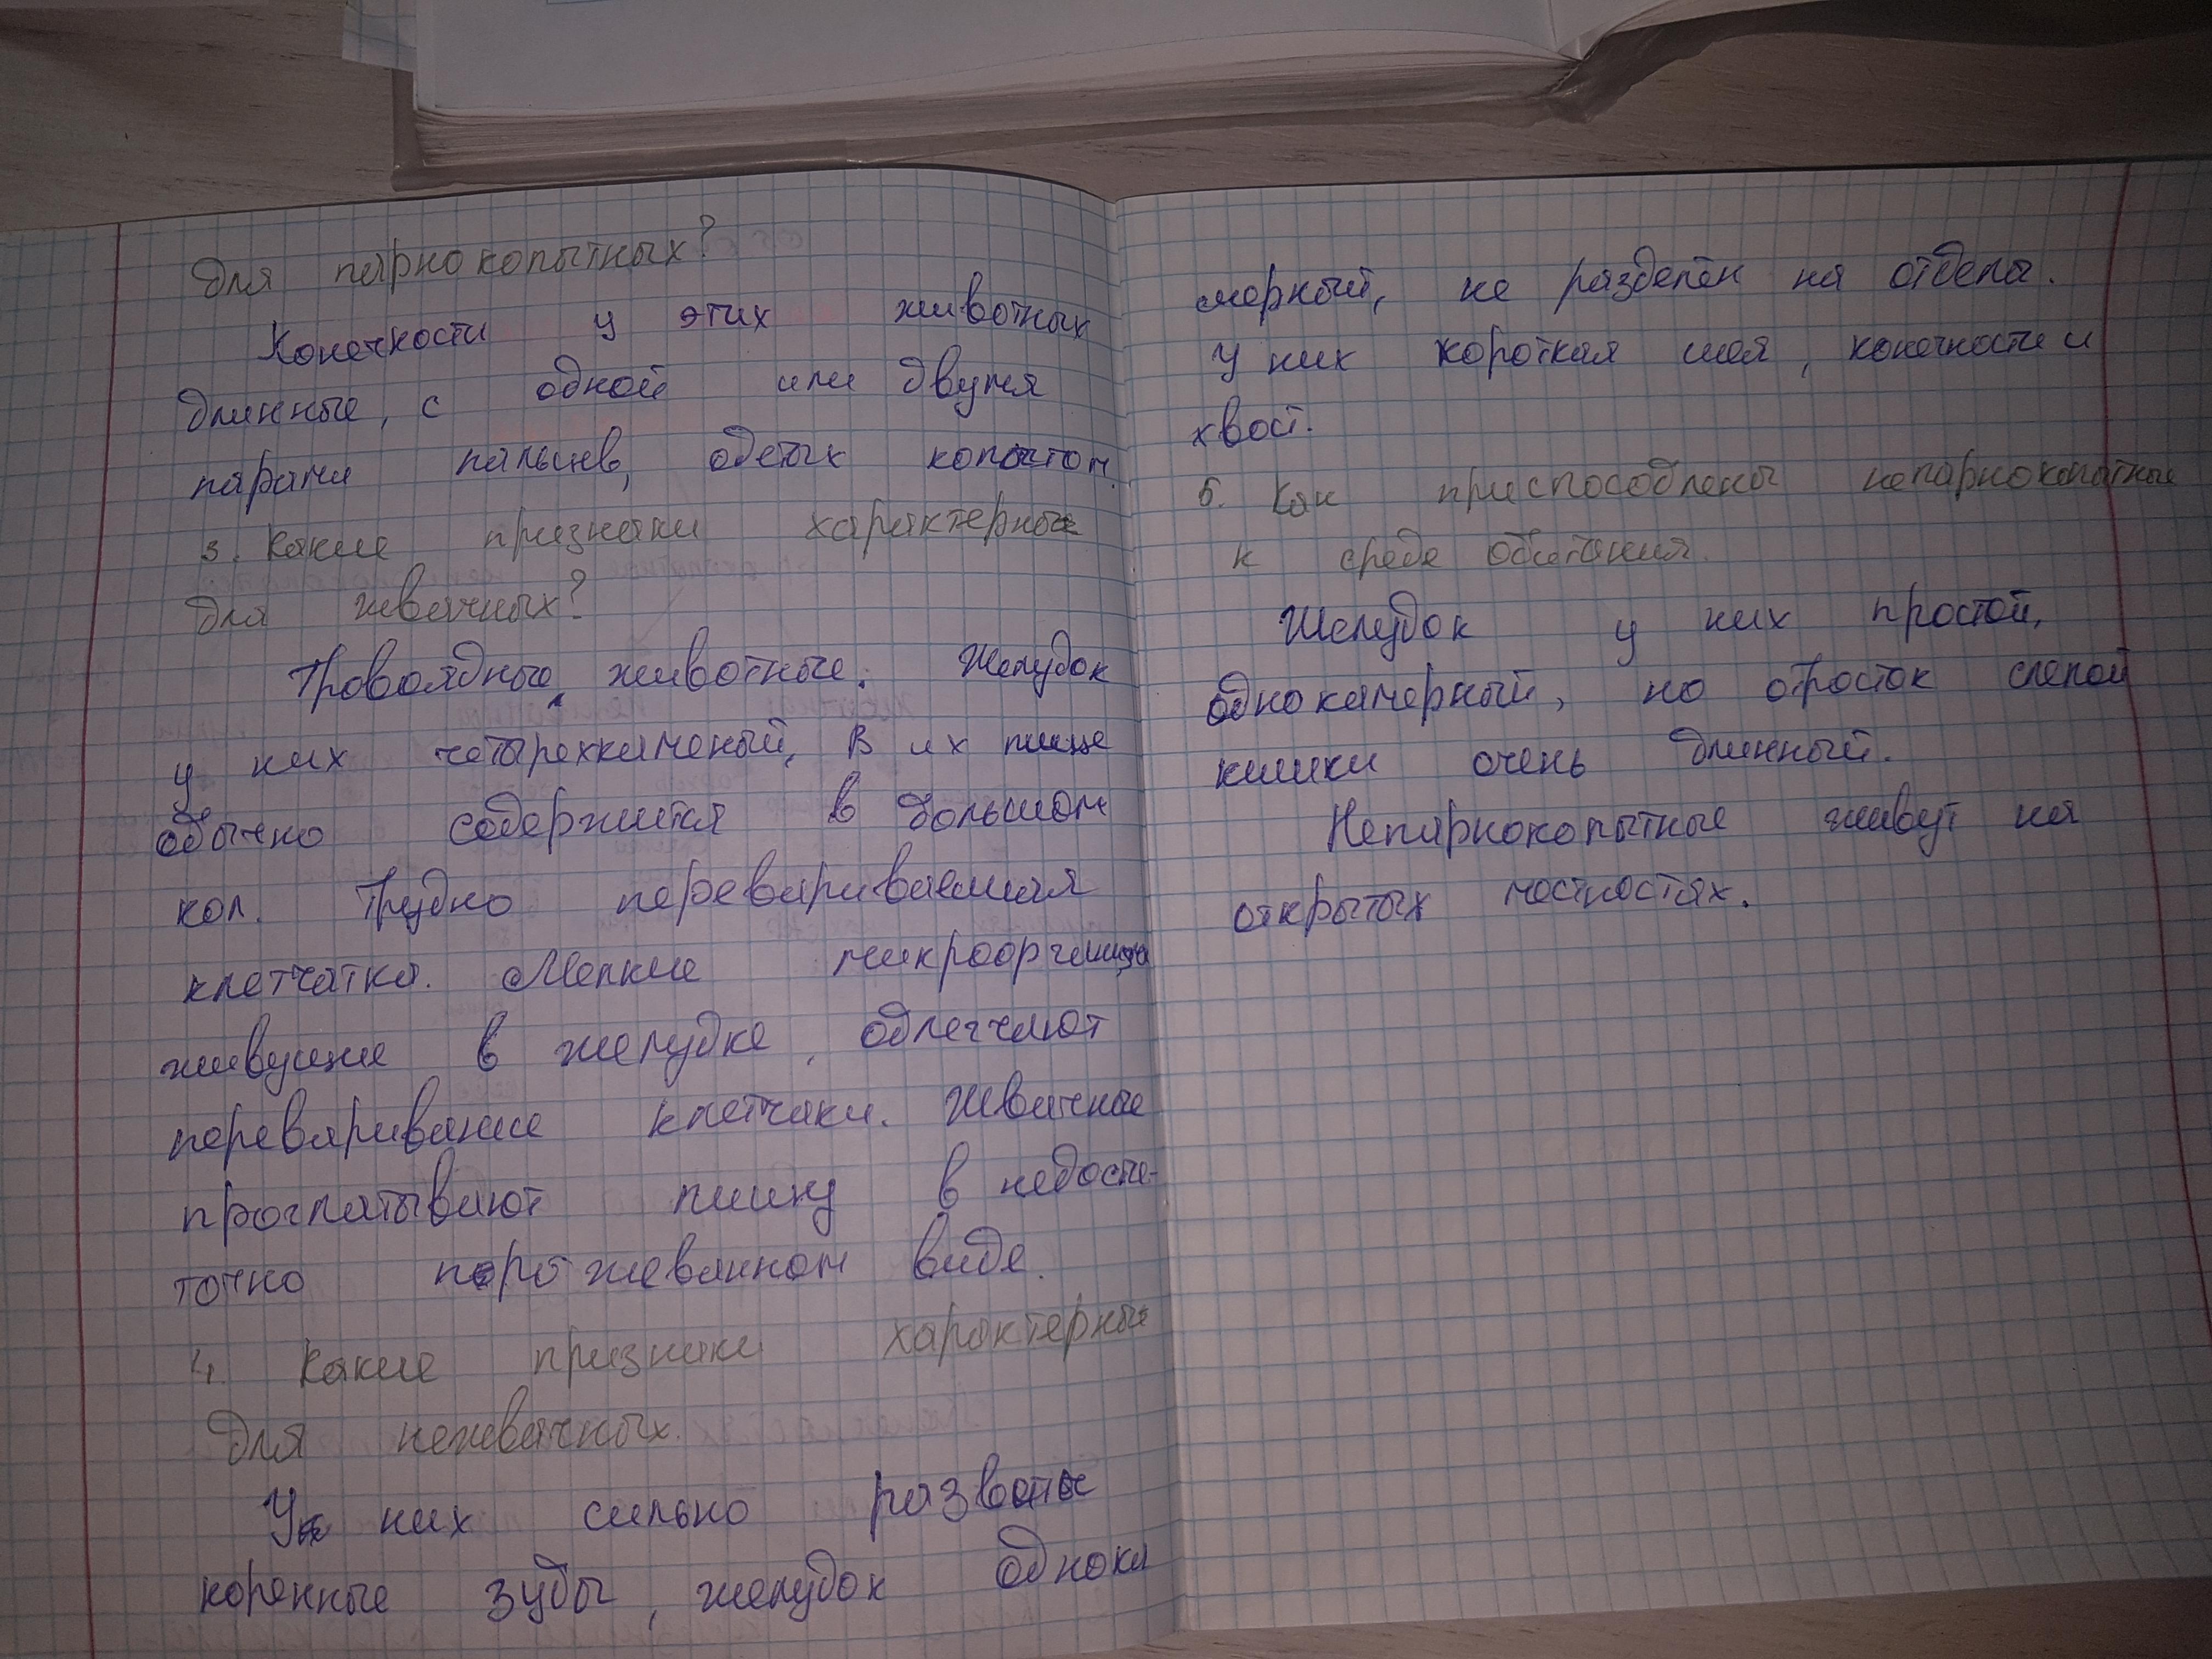 для парнокопытных?
Конечности у этих животных
длинные, с одной или двумя
парами пальцев, одетых копытом.
3. Какие признаки характерные
для жвачных?
Травоядные животные. Желудок
у них четырехкамерный, В их пище
обычно содержится в большом
кол. Трудно перевариваемая
клетчатка. Мелкие
живущие в желудке, облегчают
переваривание клетчаки. Жвачные
проглатывают пищу в недоста-
точно пережеванном виде.
4. Какие признаки характерные
для нежвачных.
У них сильно развиты
коренные зубы, желудок однока
мерный, не разделён на отделы.
У них короткая шея, конечности и
хвост.
5. Как приспособлены непарнокопытные
к среде обитания.
Желудок у них простой,
однокамерный, но отросток слепой
кишки очень длинный.
Непарнокопытные живут на
открытых местностях.